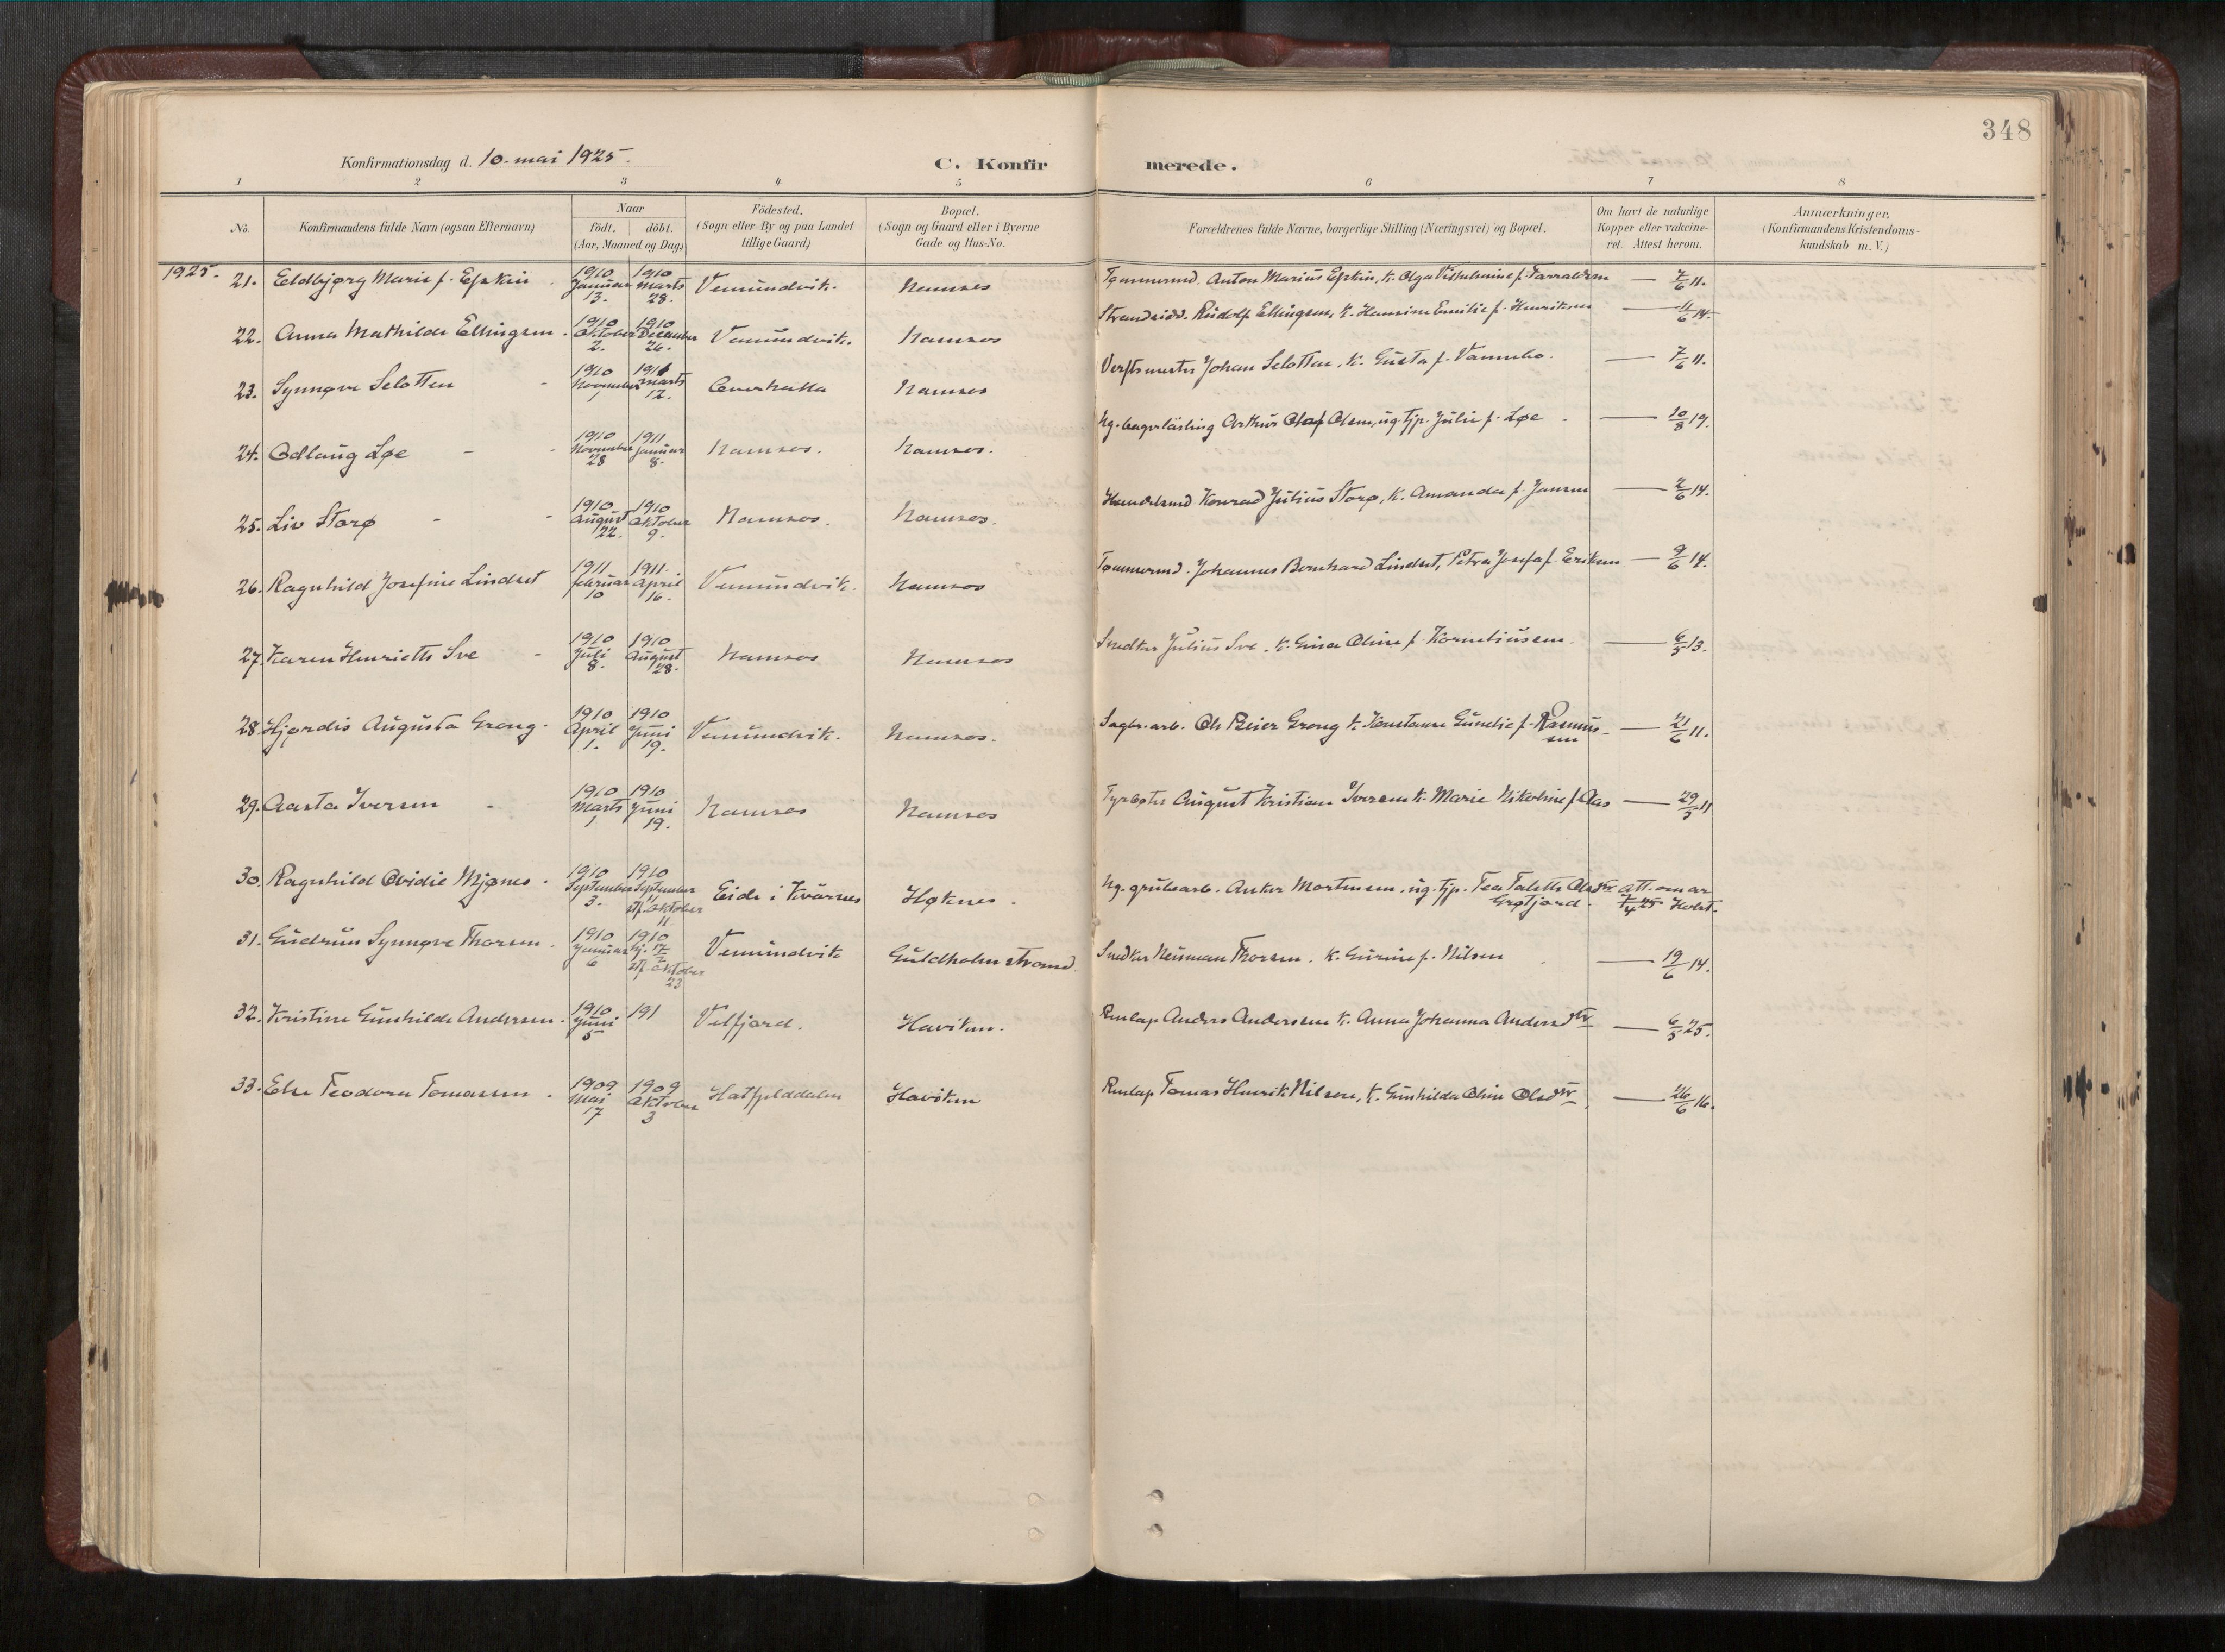 348
Konfirmationsdag d. 10. mai 1925.
C. Konfirmerede.
1 2 3 4 5 6 7 8
No.
Konfirmandens fulde Navn (ogsaa Efternavn)
Naar
født. døbt.
(Aar, Maaned og Dag)
Födested.
(Sogn eller By og paa Landet
tillige Gaard)
Bopæl.
(Sogn og Gaard eller i Byerne
Gade og Hus-No.
Forældrenes fulde Navne, borgerlige Stilling (Næringsvei) og Bopæl.
Om havt de naturlige
Kopper eller vakcine-
ret. Attest herom.
Anmærkninger.
(Konfirmandens Kristendoms-
kundskab m. V.)
1925.
21. Eldbjørg Marie f. Espkin 1910 Januar 13. 1910 Marts 28. Vemundvik. Namsos Tømmermd. Anton Marius Espkin, K. Olga Vilhelmine f. Tarraldsen — 7/6 11.
22. Anna Mathilde Ellingsen. 1910 Oktober 2. 1910 December 26. Vemundvik. Namsos Strandsidd. Rudolf Ellingsen, K. Hansine Emilie f. Henriksen — 11/6 14.
23. Synnøve Seløtten - 1910 November 1 1911 Marts 12. Overhalla Namsos Verftsmester Johan Seløtten, K. Gusta f. Vannebo. — 7/6 11.
24. Odlaug Løe - 1910 November 28 1911 Januar 8. Namsos. Namsos. Ug. bagerlærling Arthur Olaf Olsen, ug. tjp. Julie f. Løe — 10/8 19.
25. Liv Storø - 1910 August 22. 1910 Oktober 9. Namsos. Namsos. Handelsmd Konrad Julius Storø, K. Amanda f. Jansen — 2/6 14.
26. Ragnhild Josefine Lindset 1911 februar 10 1911. April 16. Vemundvik. Namsos Tømmermd. Johannes Bernhard Lindset, Petra Josefa f. Eriksen — 9/6 14.
27. Karen Henriette Sve - 1910 Juli 8. 1910 August 28. Namsos Namsos Snedker Julius Sve. K. Gina Oline f. Korneliussen. — 6/5 13.
28. Hjørdis Augusta Grong. 1910 April 1. 1910 Juni 19. Vemundvik. Namsos. Sagbr. arb. Ole Peier Grong K. Konstanse Gunelie f. Rasmus-
sen — 21/6 11.
29. Aasta Iversen - 1910 Marts 1 1910 Juni 19. Namsos Namsos Fyrbøter August Kristian Iversen K. Marie Nikoline f. Aas — 29/5 11
30. Ragnhild Ovidie Mjønes. 1910 September 3. 1910 September 11 stf. Oktober 11. Eide i Kvernes Høknes. Ug. grubearb. Anker Mortensen, ug. tjp. Tea Talette Olsdtr
Grøtfjord. att. om ar
7/4 25 Holst.
31. Gudrun Synnøve Thorsen. 1910 Januar 6 1910 hj. 17/2 stf. Oktober 23 Vemundvik Guldholmstrand. Snedker Neuman Thorsen. K. Gurine f. Nilsen — 19/6 14.
32. Kristine Gunhilde Andersen. 1910 Juni 5 191 Velfjord. Haviken. Renlap Anders Andersen K. Anna Johanna Andersdtr — 6/5 25.
33. Else Teodora Tomassen. 1909 Mai 17 1909 Oktober 3 Hatfjelddalen Haviken Renlap Tomas Henrik Nilsen, K. Gunhilda Oline Olsdtr. — 26/6 16.